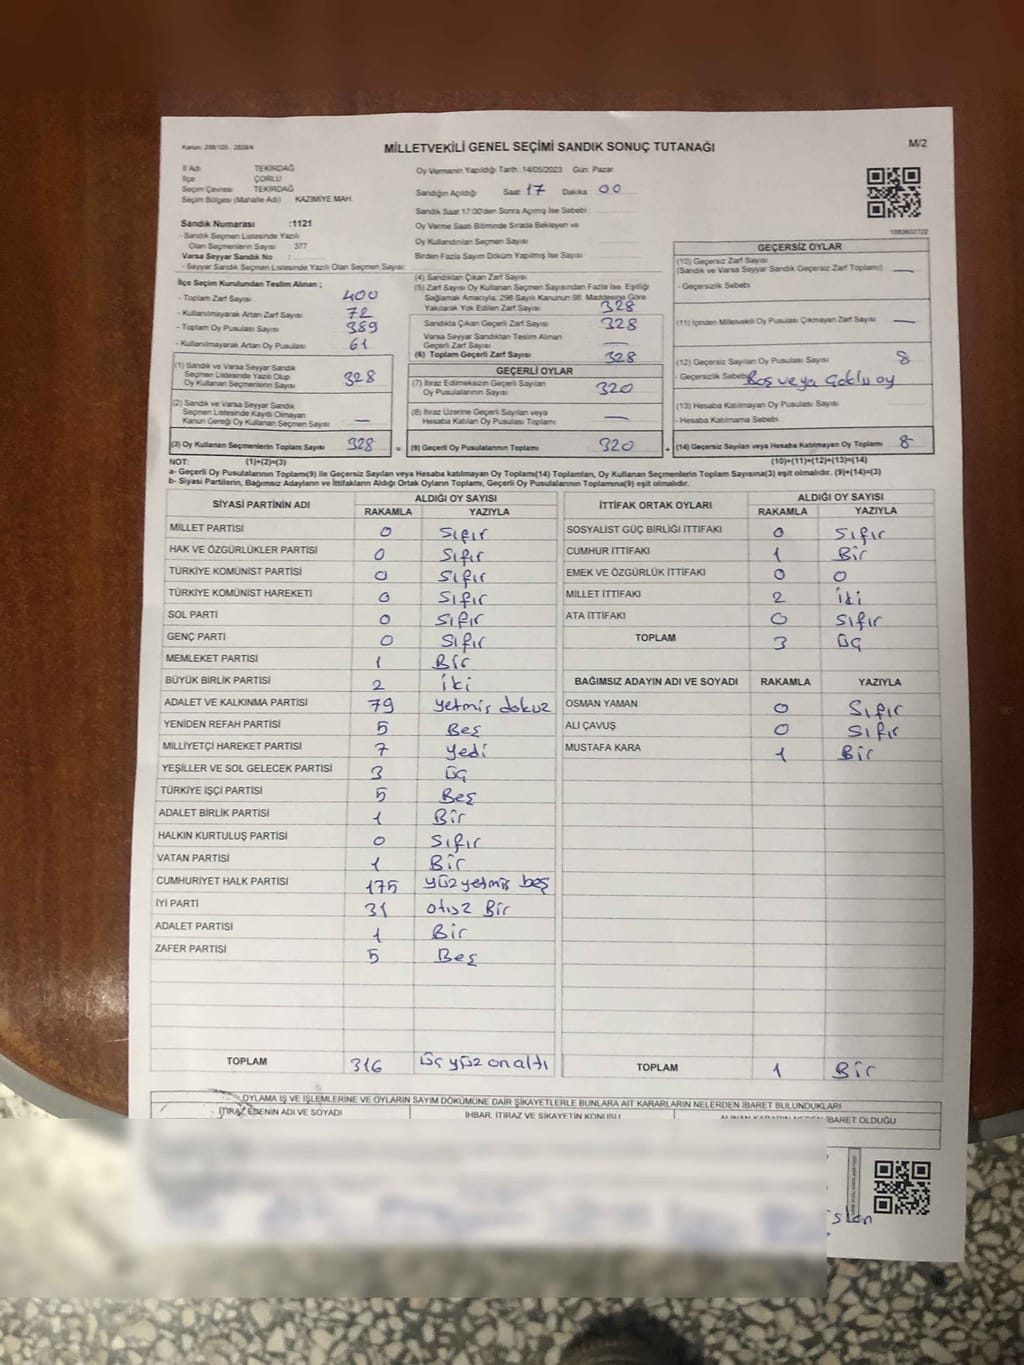 Kanun: 298/105 , 2839/4
MİLLETVEKİLİ GENEL SEÇİMİ SANDIK SONUÇ TUTANAĞI
M/2
İl Adı : TEKİRDAĞ
İlçe : ÇORLU
Seçim Çevresi : TEKİRDAĞ
Seçim Bölgesi (Mahalle Adı) KAZIMİYE MAH.
Oy Vermenin Yapıldığı Tarih :14/05/2023 Gün: Pazar
Sandığın Açıldığı Saat 17 Dakika 00
Sandık Saat 17:00'den Sonra Açılmış İse Sebebi :
Oy Verme Saati Bitiminde Sırada Bekleyen ve
Oy Kullandırılan Seçmen Sayısı
Birden Fazla Sayım Döküm Yapılmış İse Sayısı :
Sandık Numarası :1121
- Sandık Seçmen Listesinde Yazılı
Olan Seçmenlerin Sayısı 377
Varsa Seyyar Sandık No :
- Seyyar Sandık Seçmen Listesinde Yazılı Olan Seçmen Sayısı :
İlçe Seçim Kurulundan Teslim Alınan ;
- Toplam Zarf Sayısı : 400
- Kullanılmayarak Artan Zarf Sayısı : 72
- Toplam Oy Pusulası Sayısı : 389
- Kullanılmayarak Artan Oy Pusulası : 61
(1) Sandık ve Varsa Seyyar Sandık
Seçmen Listesinde Yazılı Olup
Oy Kullanan Seçmenlerin Sayısı 328
(2) Sandık ve Varsa Seyyar Sandık
Seçmen Listesinde Kayıtlı Olmayan
Kanun Gereği Oy Kullanan Seçmen Sayısı —
(3) Oy Kullanan Seçmenlerin Toplam Sayısı 328
(4) Sandıktan Çıkan Zarf Sayısı
(5) Zarf Sayısı Oy Kullanan Seçmen Sayısından Fazla İse, Eşitliği
Sağlamak Amacıyla, 298 Sayılı Kanunun 98. Maddesine Göre
Yakılarak Yok Edilen Zarf Sayısı 328
Sandıkta Çıkan Geçerli Zarf Sayısı 328
Varsa Seyyar Sandıktan Teslim Alınan
Geçerli Zarf Sayısı —
(6) Toplam Geçerli Zarf Sayısı 328
GEÇERLİ OYLAR
(7) İtiraz Edilmeksizin Geçerli Sayılan
Oy Pusulalarının Sayısı 320
(8) İtiraz Üzerine Geçerli Sayılan veya
Hesaba Katılan Oy Pusulası Toplamı —
= (9) Geçerli Oy Pusulalarının Toplamı 320
GEÇERSİZ OYLAR
(10) Geçersiz Zarf Sayısı
(Sandık ve Varsa Seyyar Sandık Geçersiz Zarf Toplamı) —
- Geçersizlik Sebebi
(11) İçinden Milletvekili Oy Pusulası Çıkmayan Zarf Sayısı —
(12) Geçersiz Sayılan Oy Pusulası Sayısı 8
- Geçersizlik Sebebi Boş veya Çoklu oy
(13) Hesaba Katılmayan Oy Pusulası Sayısı -
- Hesaba Katılmama Sebebi :
+ (14) Geçersiz Sayılan veya Hesaba Katılmayan Oy Toplamı 8
NOT: (1)+(2)=(3) (10)+(11)+(12)+(13)=(14)
a- Geçerli Oy Pusulalarının Toplamı(9) ile Geçersiz Sayılan veya Hesaba katılmayan Oy Toplamı(14) Toplamları, Oy Kullanan Seçmenlerin Toplam Sayısına(3) eşit olmalıdır. (9)+(14)=(3)
b- Siyasi Partilerin, Bağımsız Adayların ve İttifakların Aldığı Ortak Oyların Toplamı, Geçerli Oy Pusulalarının Toplamına(9) eşit olmalıdır.
SİYASİ PARTİNİN ADI ALDIĞI OY SAYISI
RAKAMLA YAZIYLA
MİLLET PARTİSİ 0 Sıfır
HAK VE ÖZGÜRLÜKLER PARTİSİ 0 Sıfır
TÜRKİYE KOMÜNİST PARTİSİ 0 Sıfır
TÜRKİYE KOMÜNİST HAREKETİ 0 Sıfır
SOL PARTİ 0 Sıfır
GENÇ PARTİ 0 Sıfır
MEMLEKET PARTİSİ 1 Bir
BÜYÜK BİRLİK PARTİSİ 2 iki
ADALET VE KALKINMA PARTİSİ 79 yetmiş dokuz
YENİDEN REFAH PARTİSİ 5 Beş
MİLLİYETÇİ HAREKET PARTİSİ 7 Yedi
YEŞİLLER VE SOL GELECEK PARTİSİ 3 üç
TÜRKİYE İŞÇİ PARTİSİ 5 Beş
ADALET BİRLİK PARTİSİ 1 Bir
HALKIN KURTULUŞ PARTİSİ 0 Sıfır
VATAN PARTİSİ 1 Bir
CUMHURİYET HALK PARTİSİ 175 yüz yetmiş beş
İYİ PARTİ 31 otuz Bir
ADALET PARTİSİ 1 Bir
ZAFER PARTİSİ 5 Beş
TOPLAM 316 üç yüz on altı
İTTİFAK ORTAK OYLARI ALDIĞI OY SAYISI
RAKAMLA YAZIYLA
SOSYALİST GÜÇ BİRLİĞİ İTTİFAKI 0 Sıfır
CUMHUR İTTİFAKI 1 Bir
EMEK VE ÖZGÜRLÜK İTTİFAKI 0 0
MİLLET İTTİFAKI 2 iki
ATA İTTİFAKI 0 sıfır
TOPLAM 3 üç
BAĞIMSIZ ADAYIN ADI VE SOYADI RAKAMLA YAZIYLA
OSMAN YAMAN 0 Sıfır
ALİ ÇAVUŞ 0 Sıfır
MUSTAFA KARA 1 Bir
TOPLAM 1 Bir
OYLAMA İŞ VE İŞLEMLERİNE VE OYLARIN SAYIM DÖKÜMÜNE DAİR ŞİKAYETLERLE BUNLARA AİT KARARLARIN NELERDEN İBARET BULUNDUKLARI
İTİRAZ EDENİN ADI VE SOYADI İHBAR, İTİRAZ VE ŞİKAYETİN KONUSU ALINAN KARARIN NEDEN İBARET OLDUĞU